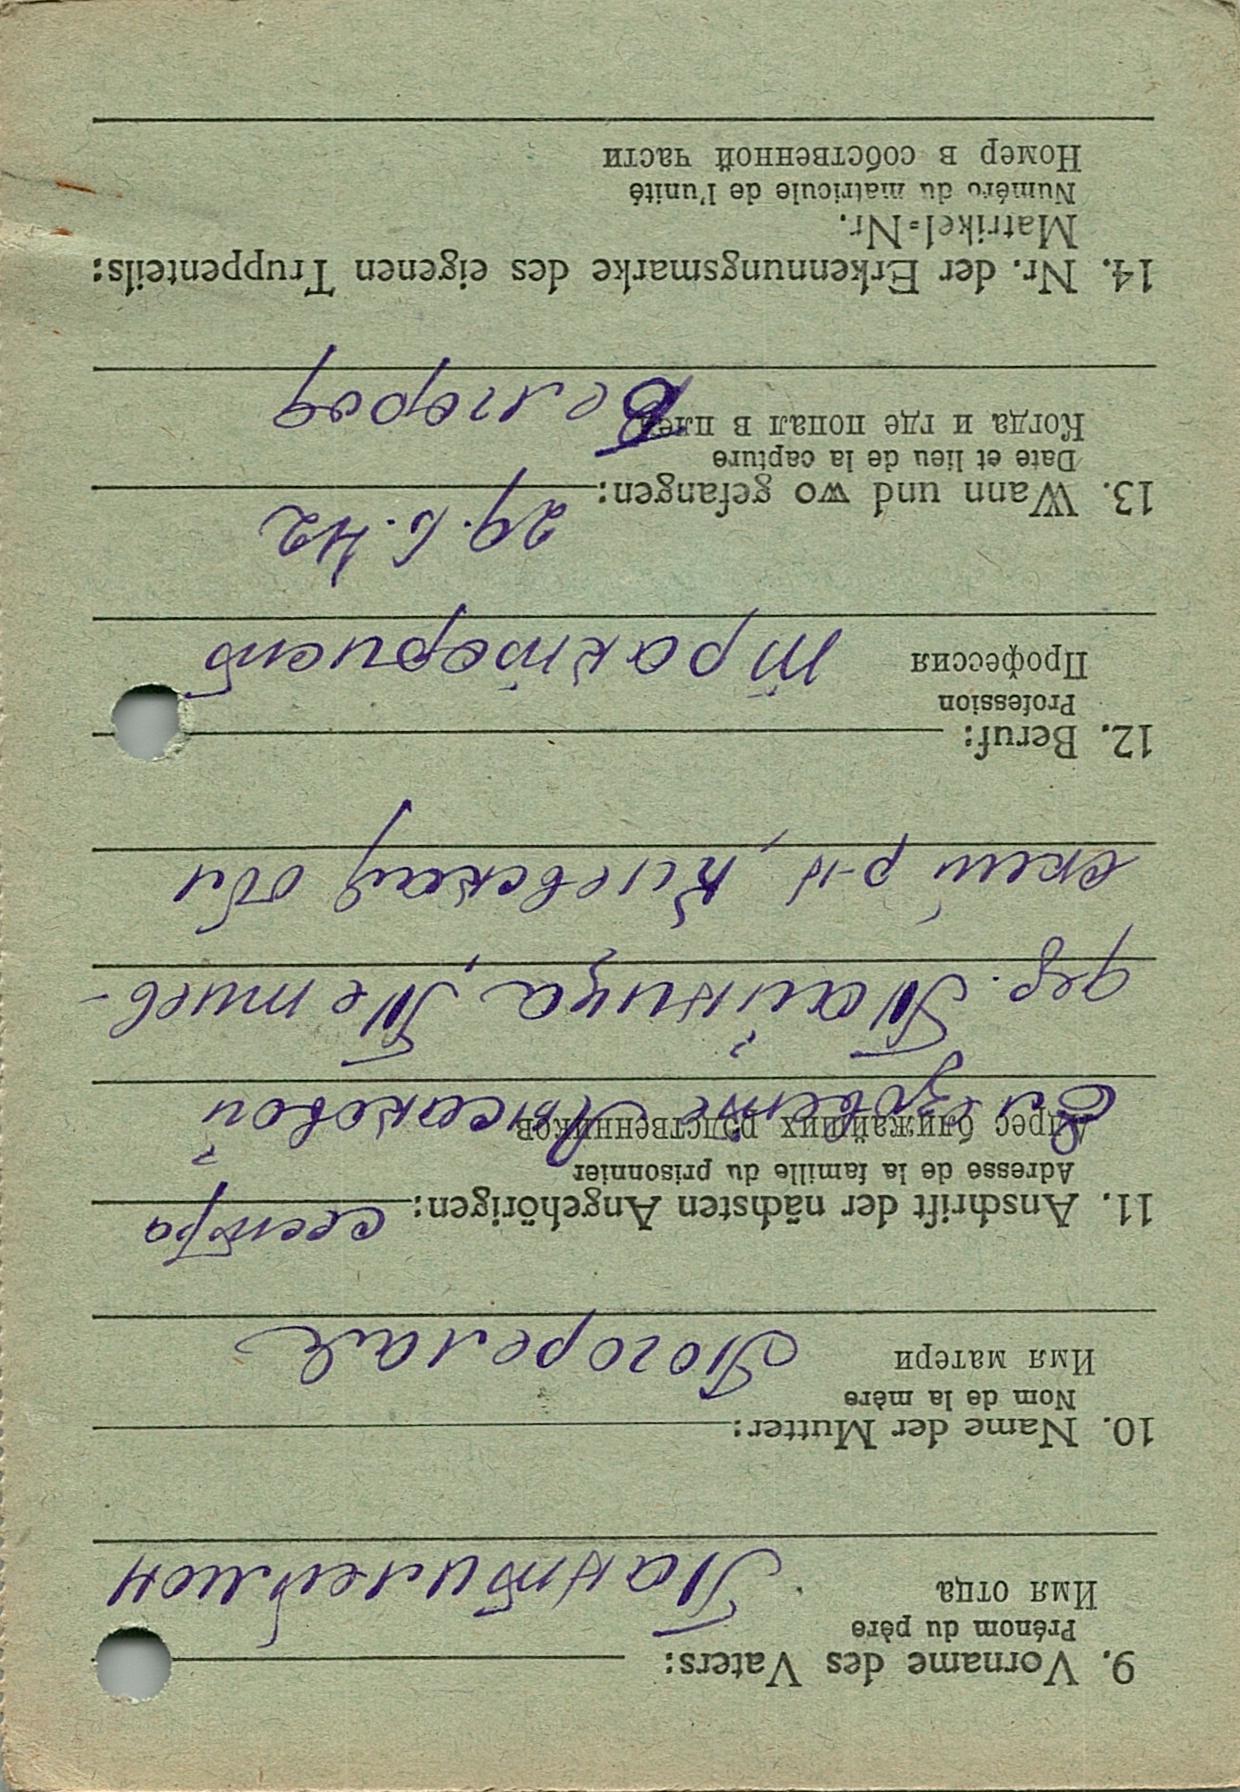 9. Vorname des Vaters:
Prénom du père
Имя отца Пантилеймон
10. Name der Mutter:
Nom de la mère
Имя матери Погорелая
11. Anschrift der nächsten Angehörigen: сестра
Adresse de la famille du prisonnier
Адрес ближайших родственников
Елизавете Лысаковой
дер. Тайница, Тетиев-
ский р-н, Киевская обл
12. Beruf:
Profession
Профессия тракторист
13. Wann und wo gefangen: 29.6.42
Date et lieu de la capture
Когда и где попал в плен Белгород
14. Nr. der Erkennungsmarke des eigenen Truppenteils:
Matrikel=Nr.
Numéro du matricule de l'unité
Номер в собственной части